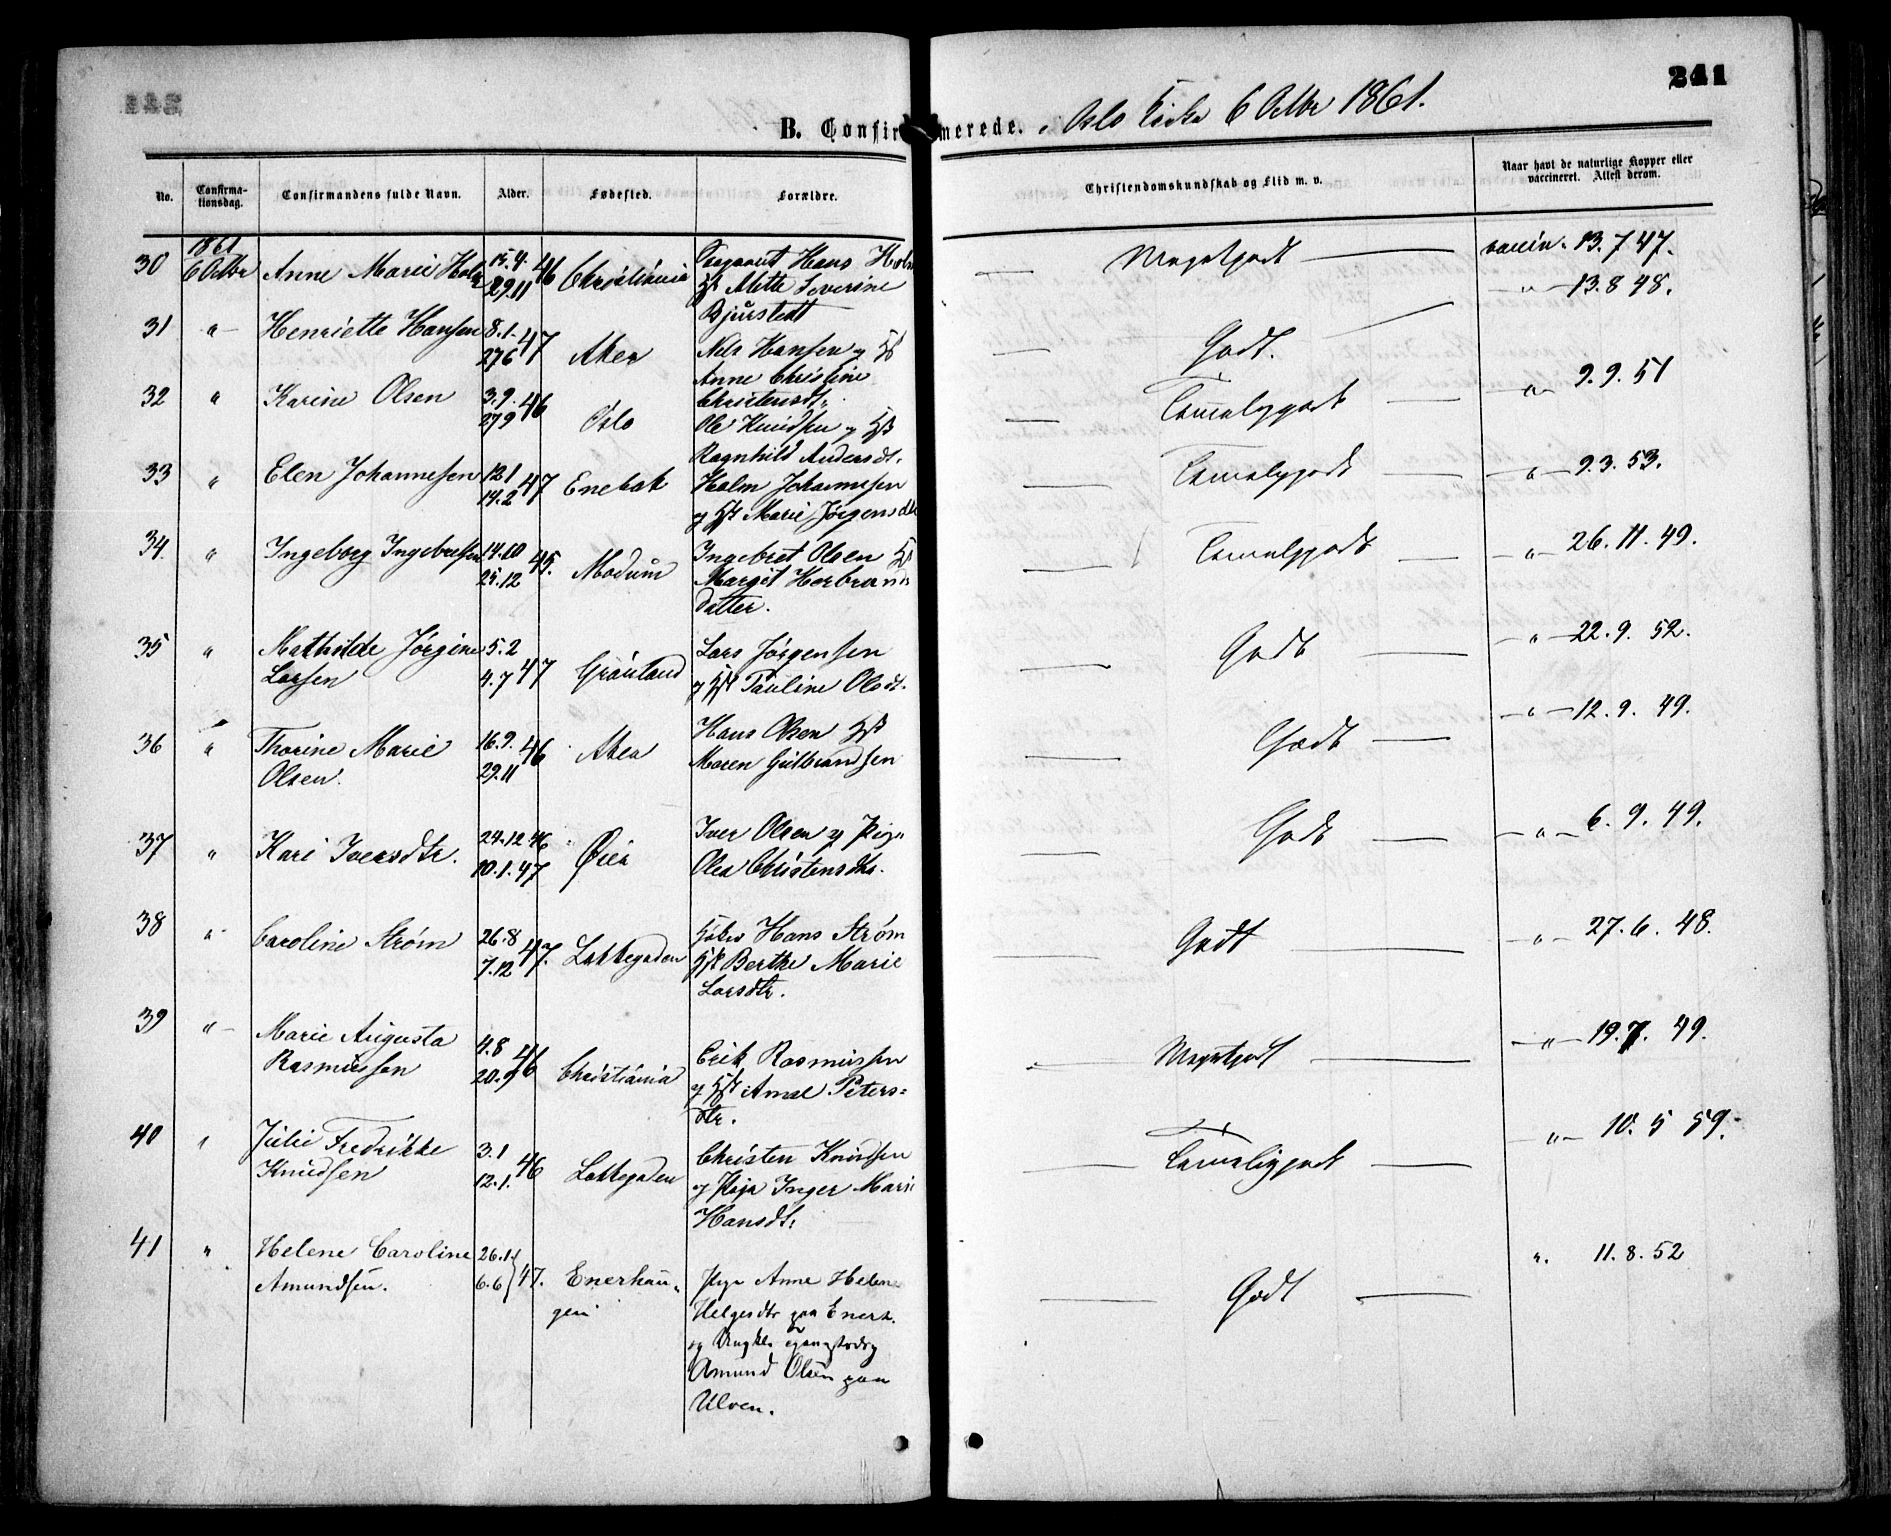 241
B. Confirmerede. i Oslo Kirke 6 Octbr 1861.
No. Confirmationsdag. Confirmandens fulde Navn. Alder. Fødested. Forældre. Christendomskundskab og Flid m. v. Naar havt de naturlige Kopper eller vaccineret. Attest derom.
1861
30 6 Octbr Anne Marie Holm 15.4. 29.11 46 Christiania Hans Holm Hst Mette Severine Bjurstedt Megetgodt vaccin. 13.7 47.
31 " Henriette Hansen 8.1. 27.6 47 Aker Nils Hansen og Hst Anne Christine Christensdt. Godt. " 13.8 48.
32 " Karine Olsen 3.9. 27.9 46 Oslo Ole Knudsen og Hst Ragnhild Andersdt. Temeliggodt " 9.9.51
33 " Elen Johannesen 12.1 14.2 47 Enebak Holm Johannesen og Hst Marie Jørgensdtr Temeliggodt " 9.3.53.
34. " Ingeborg Ingebretsen 14.10 25.12 45. Modum Ingebret Olsen Hst Margit Herbrands datter. Temeliggodt " 26.11.49.
35 " Mathilde Jørgine Larsen 5.2 4.7 47 Grønland Lars Jørgensen og Hst Pauline Olsdt. Godt " 22.9.52.
36 " Thorine Marie Olsen. 16.9. 29.11 46 Aker Hans Olsen Hst Maren Gulbrandsen Godt " 12.9.49.
37 " Kari Iversdtr. 24.12 46 10.1.47 Øier Iver Olsen og Pige Olea Christensdtr. Godt " 6.9.49.
38 " Caroline Strøm 26.8 7.12 47. Lakkegaden Hans Strøm Hst Berthe Marie Larsdtr. Godt " 27.6.48.
39 " Marie Augusta Rasmussen 4.8 20.9 46 Christiania Erik Rasmussen og Hst Amal. Peters= dtr. Megetgodt " 19.7.49.
40 " Julie Fredrikke Knudsen 3.1 12.1. 46 Lakkegaden Christen Knudsen og Pige Inger Marie Hansdt. Temeliggodt " 10.5 59.
41 " Helene Caroline Amundsen. 26.1 6.6 47. Enerhaugen Pige Anne Helene Helgesdtr paa Enerh. og Ungkl. Amund Olsen paa Ulven. Godt " 11.8.52